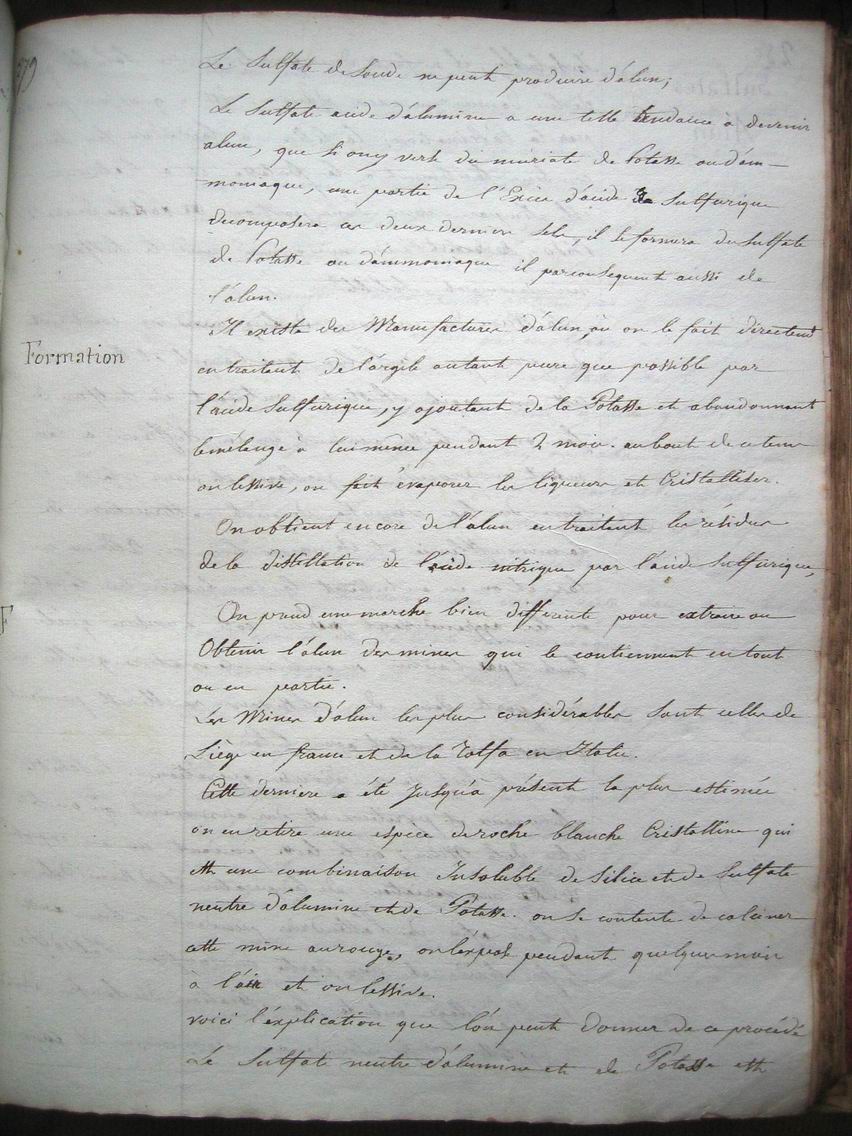 79
Le Sulfate de Soude ne peut produire d'alun;
Le Sulfate acide d'alumine a une telle tendance à devenir
alun, que si on y verse du muriate de Potasse ou d'am-
momiaque, une partie de l'Excès d'acide Sulfurique
decomposera ces deux derniers sels, il se formera du sulfate
de Potasse ou d'ammomiaque il par consequent aussi de
l'alun.
Il existe des Manufactures d'alun, où on le fait directemt
Formation
en traitant de l'argile autant pure que possible par
l'acide Sulfurique, y ajoutant de la Potasse et abandonnant
le mélange à lui même pendant 2 mois. au bout de ce tems
on lessive, on fait évaporer les liqueurs et Cristalliser.
On obtient encore de l'alun en traitant les résidus
de la distillation de l'acide nitrique par l'acide Sulfurique,
F
On prend une marche bien differente pour extraire ou
Obtenir l'alun des mines qui le contiennent en tout
ou en partie.
Les Mines d'alun les plus considérables sont celles de
Liège en france et de la Tolfa en Italie.
Cette derniere a été jusqu'à présent la plus estimée
on en retire une espece de roche blanche Cristalline qui
est une combinaison Insoluble de Silice et de Sulfate
neutre d'alumine et de Potasse. on se contente de calciner
cette mine au rouge, on l'expose pendant quelques mois
à l'air et on lessive.
voici l'explication que l'on peut donner de ce procédé
Le Sulfate neutre d'alumine et de Potasse est